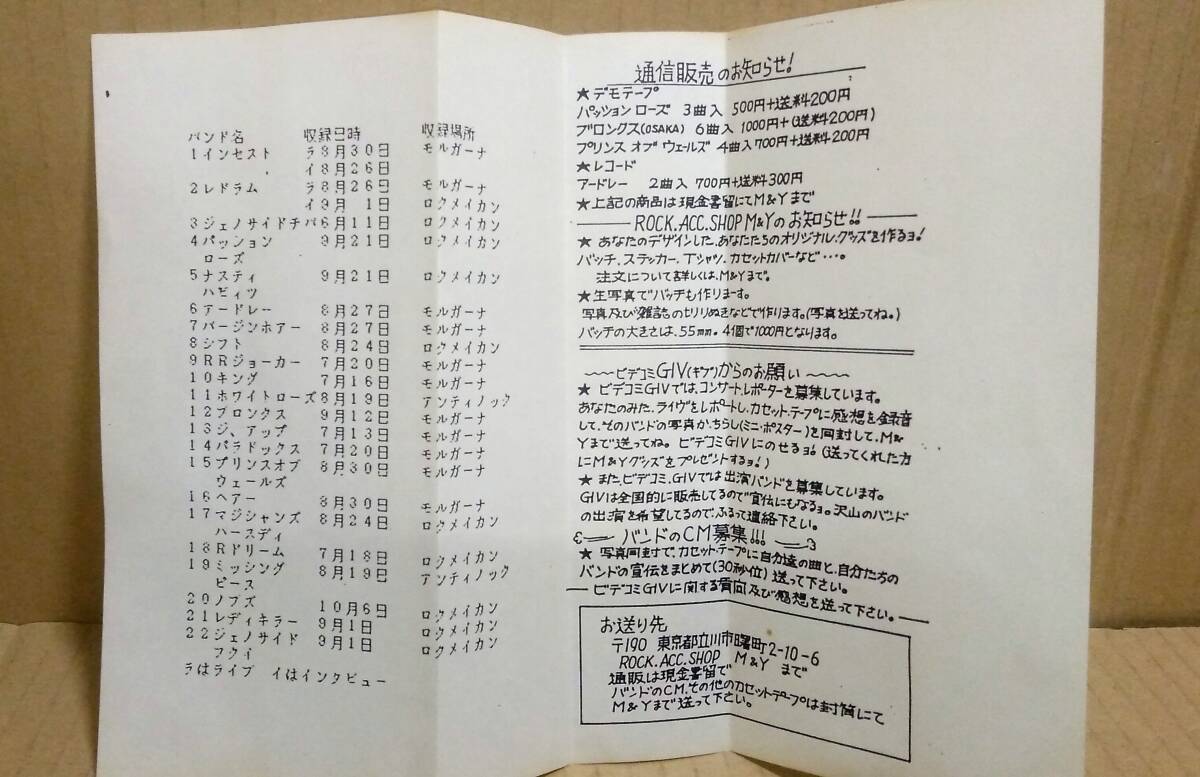 バンド名 収録日時 収録場所
1インセスト ラ8月30日 モルガーナ
イ8月26日
2レドラム ラ8月26日 モルガーナ
イ9月 1日 ロクメイカン
3ジェノサイドチバ6月11日 ロクメイカン
4パッション 9月21日 ロクメイカン
ローズ
5ナスティ 9月21日 ロクメイカン
ハビィツ
6アードレー 8月27日 モルガーナ
7バージンホアー 8月27日 モルガーナ
8シフト 8月24日 ロクメイカン
9RRジョーカー 7月20日 モルガーナ
10キング 7月16日 モルガーナ
11ホワイトローズ8月19日 アンティノック
12ブロンクス 9月12日 モルガーナ
13ジ、アップ 7月13日 モルガーナ
14パラドックス 7月20日 モルガーナ
15プリンスオブ 8月30日 モルガーナ
ウェールズ
16ヘアー 8月30日 モルガーナ
17マジシャンズ 8月24日 ロクメイカン
ハースディ
18Rドリーム 7月18日 ロクメイカン
19ミッシング 8月19日 アンティノック
ピース
20ノブズ 10月6日 ロクメイカン
21レディキラー 9月1日 ロクメイカン
22ジェノサイド 9月1日 ロクメイカン
フクイ
ラはライブ イはインタビュー
通信販売のお知らせ!
★デモテープ
パッション ローズ 3曲入 500円+送料200円
ブロンクス(OSAKA) 6曲入 1000円+(送料200円)
プリンス オブ ウェールズ 4曲入700円+送料200円
★レコード
アードレー 2曲入 700円+送料300円
★上記の商品は現金書留にてM&Yまで
ROCK.ACC.SHOP M&Yのお知らせ!!
★ あなたのデザインした、あなたたちのオリジナル.グッズを作るョ!
バッチ.ステッカー.Tシャツ.カセットカバーなど…。
注文について詳しくは、M&Yまで。
★生写真でバッチも作ります。
写真及び雑誌のせりりぬきなどで作ります。(写真を送ってね。)
バッチの大きさは、55mm。4個で1000円となります。
ビデコミGIV(ギブ)からのお願い
★ ビデコミGIVでは、コンサート.レポーターを募集しています。
あなたのみた.ライヴをレポートし、カセット.テープに感想を録音
して、そのバンドの写真か、ちらし(ミニ・ポスター)を同封して、M&
Yまで送ってね。ビデコミGIVにのせるョ!(送ってくれた方
にM&Yグッズをプレゼントするョ!)
★また、ビデコミ.GIVでは出演バンドを募集しています。
GIVは全国的に販売してるので宣伝にもなるョ。沢山のバンド
の出演を希望してるので、ふるって連絡下さい。
バンドのCM募集!!!
★ 写真同封で、カセット.テープに自分達の曲と、自分たちの
バンドの宣伝をまとめて(30秒位)送って下さい。
ビデコミGIVに関する質問及び感想を送って下さい。
お送り先
〒190 東京都立川市曙町2-10-6
ROCK.ACC.SHOP M&Y まで
通販は現金書留で
バンドのCM.その他のカセットテープは封筒にて
M&Yまで送って下さい。